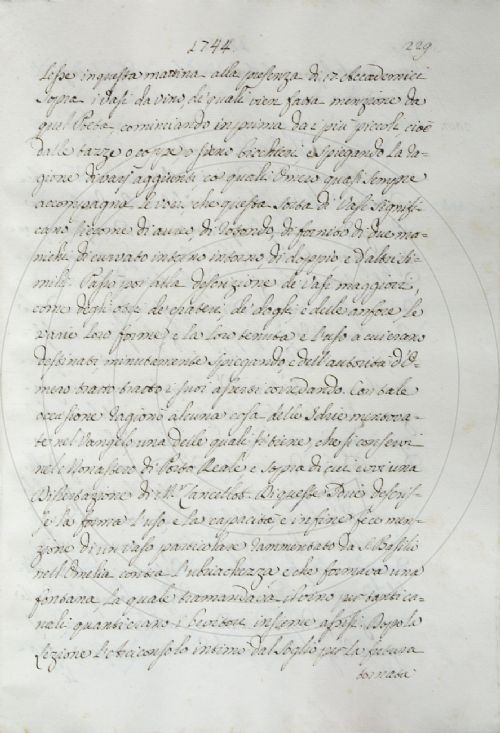 1744. 229
Lesse in questa mattina alla presenza di 17 Accademici
sopra i Vasi da vino, di quali vien fatta menzione da
quel Poeta, cominciando in prima da i più piccoli, cioè
dalle tazze o coppe o sieno bicchieri, e spiegando la ra-
gione di varj aggiunti co' quali Omero quasi sempre
accompagna le voci, che questa sorta di Vasi signifi-
cano siccome di aureo, di rotondo, di fornito di due ma-
nichi, di curvato intorno intorno, di doppio e d'altri si-
mili. Passò poi alla descrizione de' Vasi maggiori,
come degli otri de' crateri, de' dogli e delle anfore, le
varie loro forme, e la loro tenuta e l'uso a cui erano
destinati minutamente spiegando, e dell'autorità d'O-
mero tratto tratto i suoi asserti corredando. Con tale
occasione ragionò alcuna cosa delle Idrie mentova-
te nel Vangelo una delle quali si tiene, che si conservi
nel Monastero di Porto Reale e sopra di cui evvi una
Dissertazione di Mr. Lancelot. Di queste Idrie descris-
se la forma l'uso e la capacità, e infine fece men-
zione di un Vaso particolare rammentato da S. Basilio
nell'Omelia contra l'ubriachezza, e che formava una
fontana la quale tramandava il vino per tanti ca-
nali quanti erano i bevitori insieme assisi. Dopo la
Lezione l'Arciconsolo intimò dal Soglio per la futura
tornata